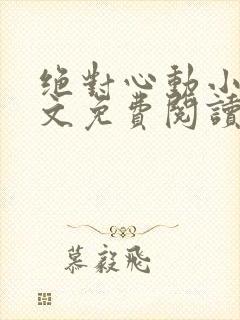 绝對心動小
文免費閱讀
慕毅飛